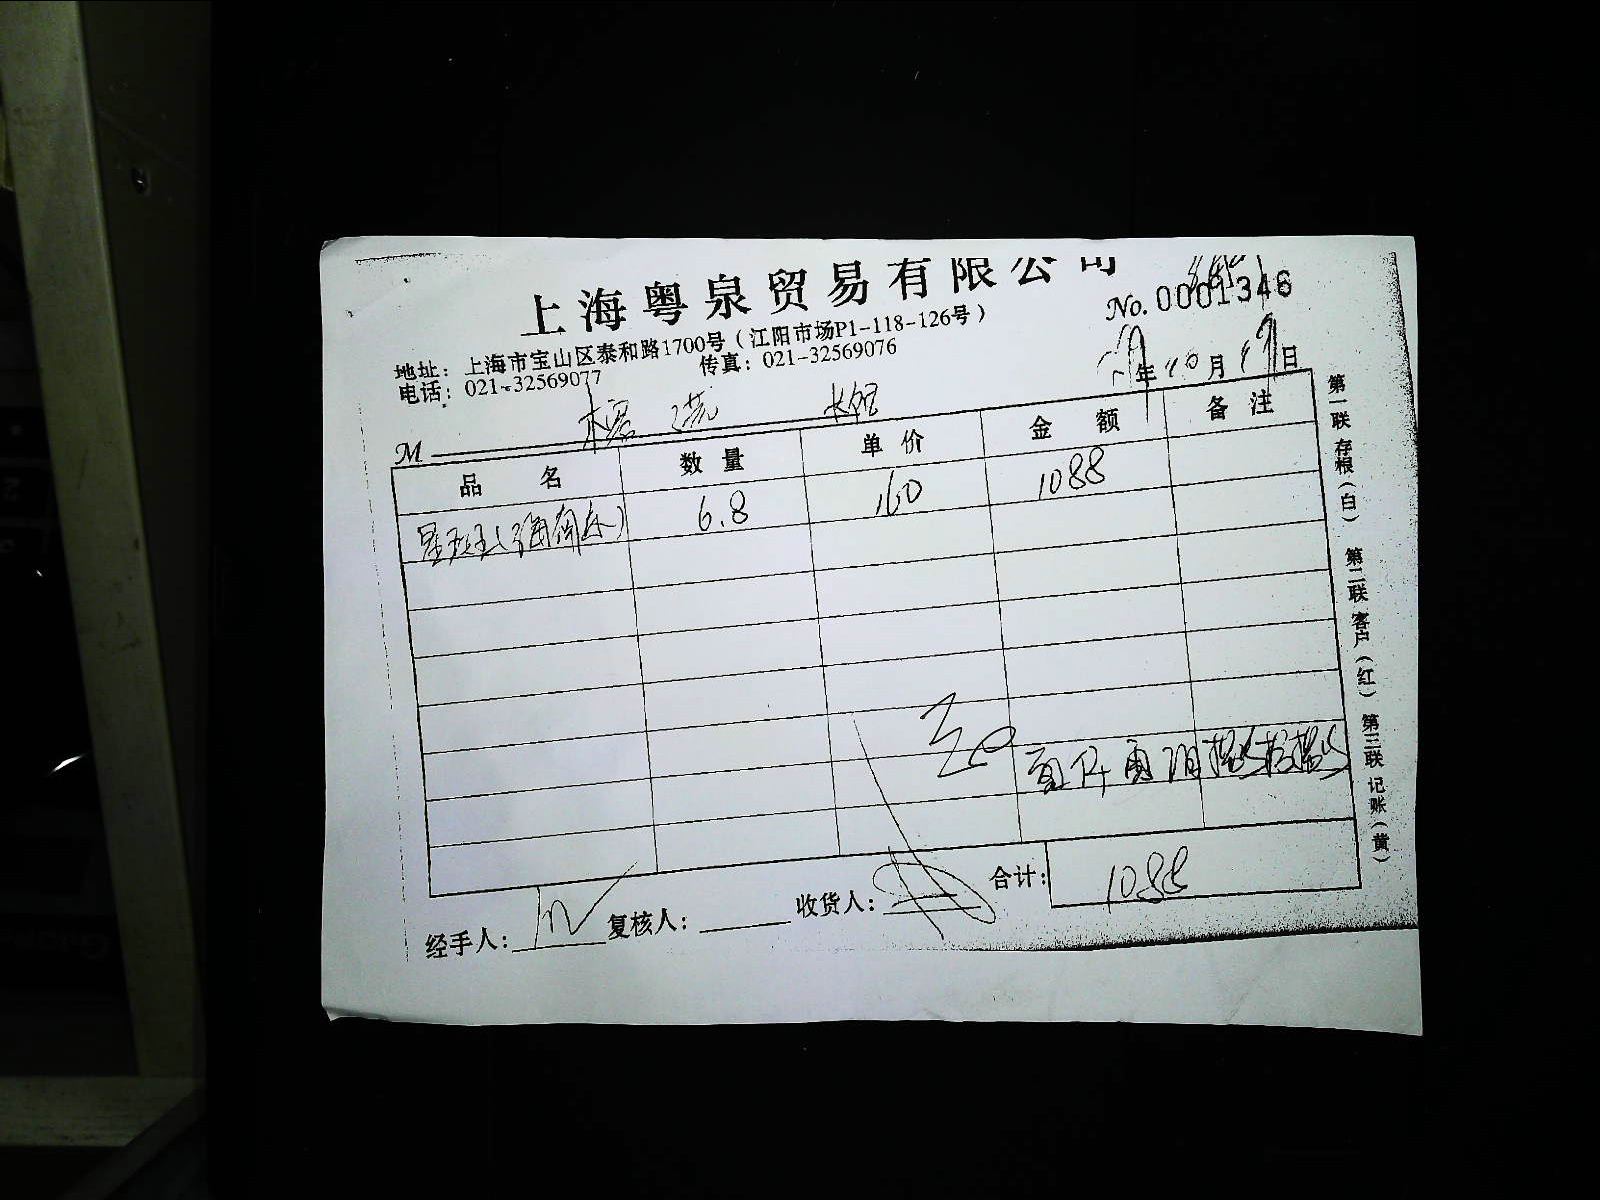 上海粤泉贸易有限公司
No. 0001346
地址：上海市宝山区泰和路1700号（江阳市场P1-118-126号）
电话：021-32569077 传真：021-32569076
年10月17日
M
品名 数量 单价 金额 备注
6.8 160 1088
合计：1088
经手人： 复核人： 收货人：
第一联 存根（白） 第二联 客户（红） 第三联 记账（黄）